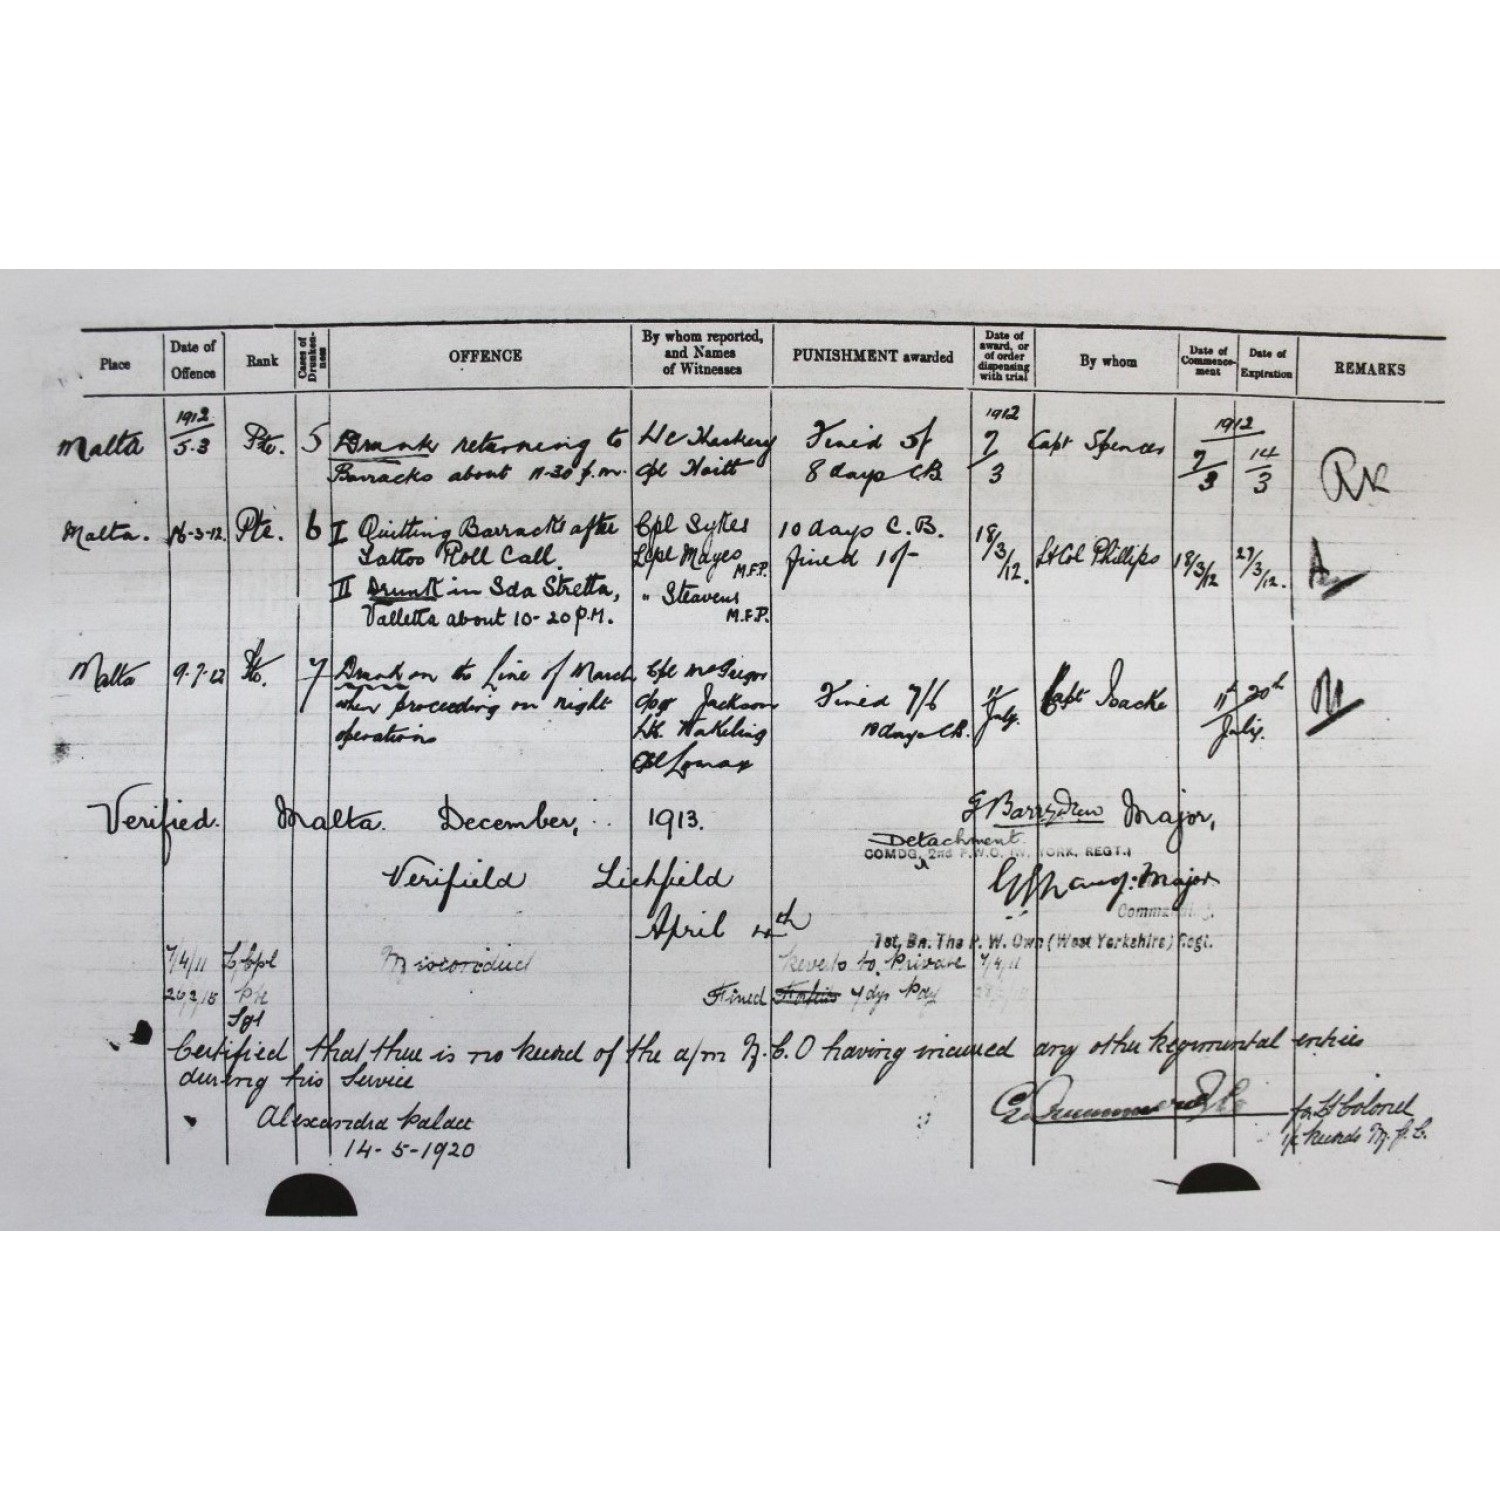 Place Date of Offence Rank Cases of Drunkenness OFFENCE By whom reported, and Names of Witnesses PUNISHMENT awarded Date of award, or of order dispensing with trial By whom Date of Commencement Date of Expiration REMARKS
1912 1912 1912
Malta 5.3 Pte. 5 Drunk returning to Fined 5/- 7/3 Capt Spencer 7/3 14/3
Barracks about 11-30 p.m. Cpl 8 days C.B.
Malta. 16-3-12. Pte. 6 I Quitting Barracks after Cpl Sykes 10 days C.B. 18/3/12. Lt Col Phillips 18/3/12 27/3/12.
Tattoo Roll Call. Lcpl Mayes M.F.P. fined 10/-
II Drunk in Sda Stretta, " Steavens
Valletta about 10-20 P.M. M.F.P.
Malta 9.7.12 Pte. 7 Drunk on the Line of March Cpl McGregor Fined 7/6 11/July. Capt Isacke 11th 20th July.
when proceeding on night Jackson 10 days C.B.
operations Wakeling
Cpl Lomax
Verified. Malta. December, 1913. Major,
Detachment
COMDG. 2nd P.W.O. (W. YORK. REGT.)
Verifield Lichfield Major
April Commanding,
1st. Bn. The P. W. Own (West Yorkshire) Regt.
7/4/11 L/Cpl Misconduct Reverts to Private 7/4/11
Pte Fined Forfeits 7 dys Pay
Sgt
Certified that there is no Record of the a/m N.C.O having incurred any other Regimental entries
during his Service
for Lt Colonel
Alexandra Palace i/c Records
14-5-1920